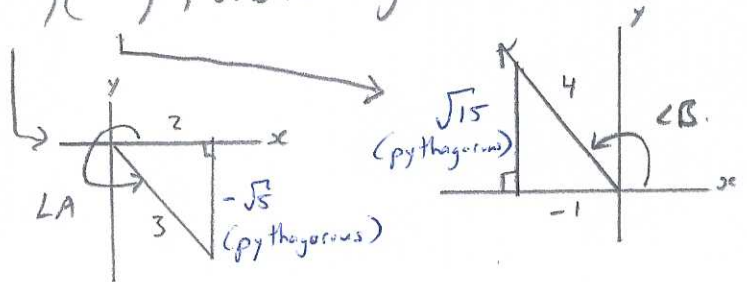 y
2
x
∠A
3
-√5
(pythagorous)
y
4
√15
(pythagorous)
∠B.
-1
x